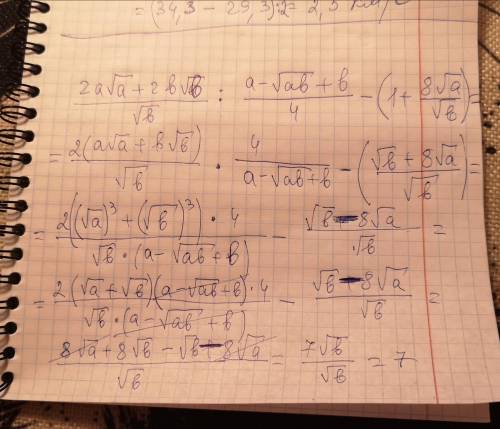 = (34,3 − 29,3):2 = 2,5 км/с
(2a√a + 2b√b)/√b : (a − √ab + b)/4 − (1 + 8√a/√b) =
= 2(a√a + b√b)/√b · 4/(a − √ab + b) − ((√b + 8√a)/√b) =
= 2((√a)³ + (√b)³) · 4/(√b · (a − √ab + b)) − (√b − 8√a)/√b =
= 2(√a + √b)(a − √ab + b) · 4/(√b · (a − √ab + b)) − (√b − 8√a)/√b =
(8√a + 8√b − √b − 8√a)/√b = 7√b/√b = 7